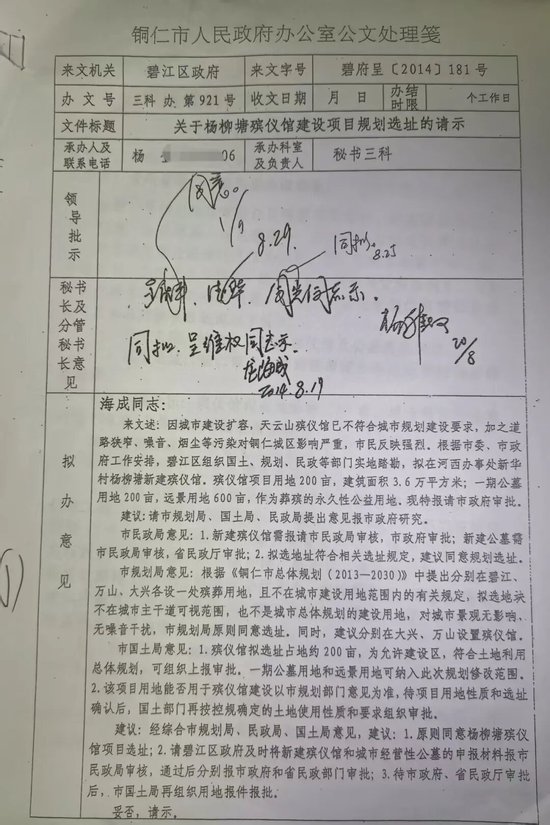 铜仁市人民政府办公室公文处理笺
来文机关 碧江区政府 来文字号 碧府呈〔2014〕181号
办文号 三科 办 第921号 收文日期 月 日 办结时限 个工作日
文件标题 关于杨柳塘殡仪馆建设项目规划选址的请示
承办人及联系电话 杨 06 承办科室及负责人 秘书三科
领导批示
同意。
1/9
8.29
同拟。
8.25
秘书长及分管秘书长意见
同志示。
20/8
同拟。呈维权同志示。
2014.8.19
拟办意见
海成同志：
来文述：因城市建设扩容，天云山殡仪馆已不符合城市规划建设要求，加之道
路狭窄、噪音、烟尘等污染对铜仁城区影响严重，市民反映强烈。根据市委、市政
府工作安排，碧江区组织国土、规划、民政等部门实地踏勘，拟在河西办事处新华
村杨柳塘新建殡仪馆。殡仪馆项目用地200亩，建筑面积3.6万平方米；一期公墓
用地200亩，远景用地600亩，作为葬殡的永久性公益用地。现特报请市政府审批。
建议：请市规划局、国土局、民政局提出意见报市政府研究。
市民政局意见：1.新建殡仪馆需报请市民政局审核，市政府审批；新建公墓需
市民政局审核，省民政厅审批；2.拟选地址符合相关选址规定，建议同意规划选址。
市规划局意见：根据《铜仁市总体规划（2013—2030）》中提出分别在碧江、
万山、大兴各设一处殡葬用地，且不在城市建设用地范围内的有关规定，拟选地块
不在城市主干道可视范围，也不是城市总体规划的建设用地，对城市景观无影响、
无噪音干扰，市规划局原则同意选址。同时，建议分别在大兴、万山设置殡仪馆。
市国土局意见：1.殡仪馆拟选址占地约200亩，为允许建设区，符合土地利用
总体规划，可组织上报审批。一期公墓用地和远景用地可纳入此次规划修改范围。
2.该项目用地能否用于殡仪馆建设以市规划部门意见为准，待项目用地性质和选址
确认后，国土部门再按控规确定的土地使用性质和要求组织审批。
建议：经综合市规划局、民政局、国土局意见，建议：1.原则同意杨柳塘殡仪
馆项目选址；2.请碧江区政府及时将新建殡仪馆和城市经营性公墓的申报材料报市
民政局审核，通过后分别报市政府和省民政部门审批；3.待市政府、省民政厅审批
后，市国土局再组织用地报件报批。
妥否，请示。